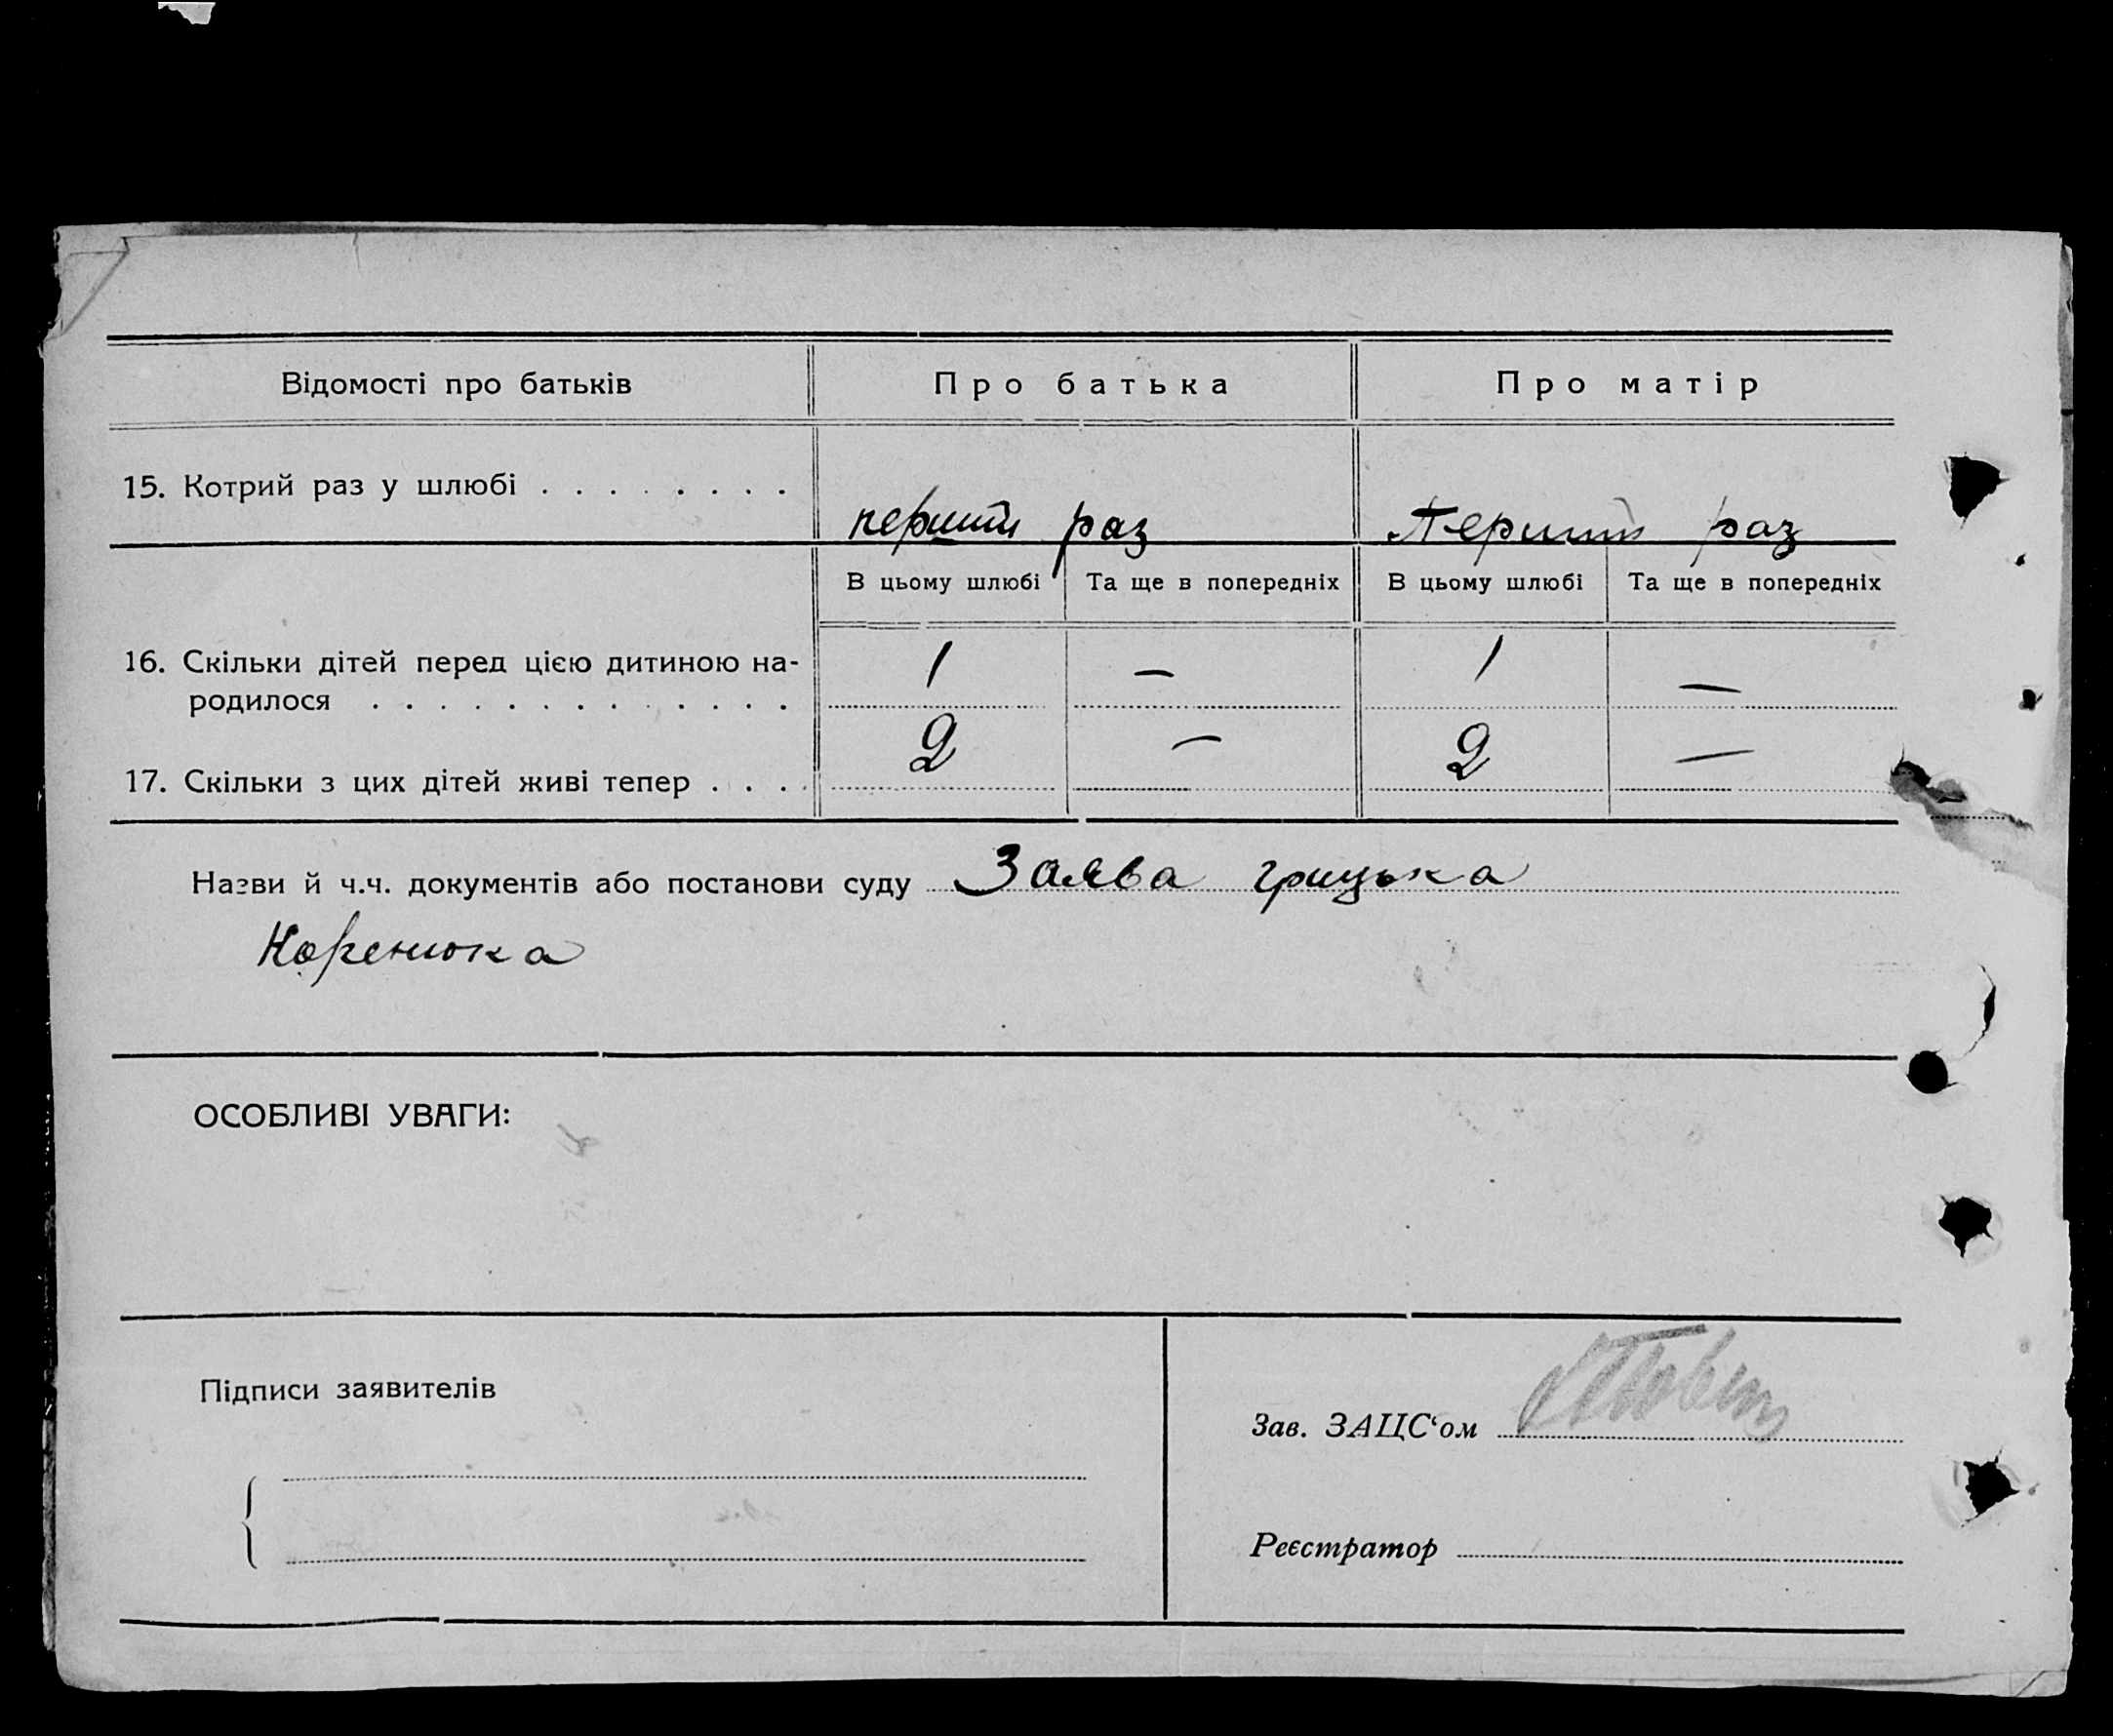 Відомості про батьків Про батька Про матір
15. Котрий раз у шлюбі . . . . . . . . перший раз Перший раз
В цьому шлюбі Та ще в попередніх В цьому шлюбі Та ще в попередніх
16. Скільки дітей перед цією дитиною на-
родилося . . . . . . . . . . . . . 1 — 1 —
17. Скільки з цих дітей живі тепер . . . . 2 — 2 —
Назви й ч.ч. документів або постанови суду Заява грицька
Коренюка
ОСОБЛИВІ УВАГИ:
Підписи заявителів
Зав. ЗАЦС‘ом
Реєстратор